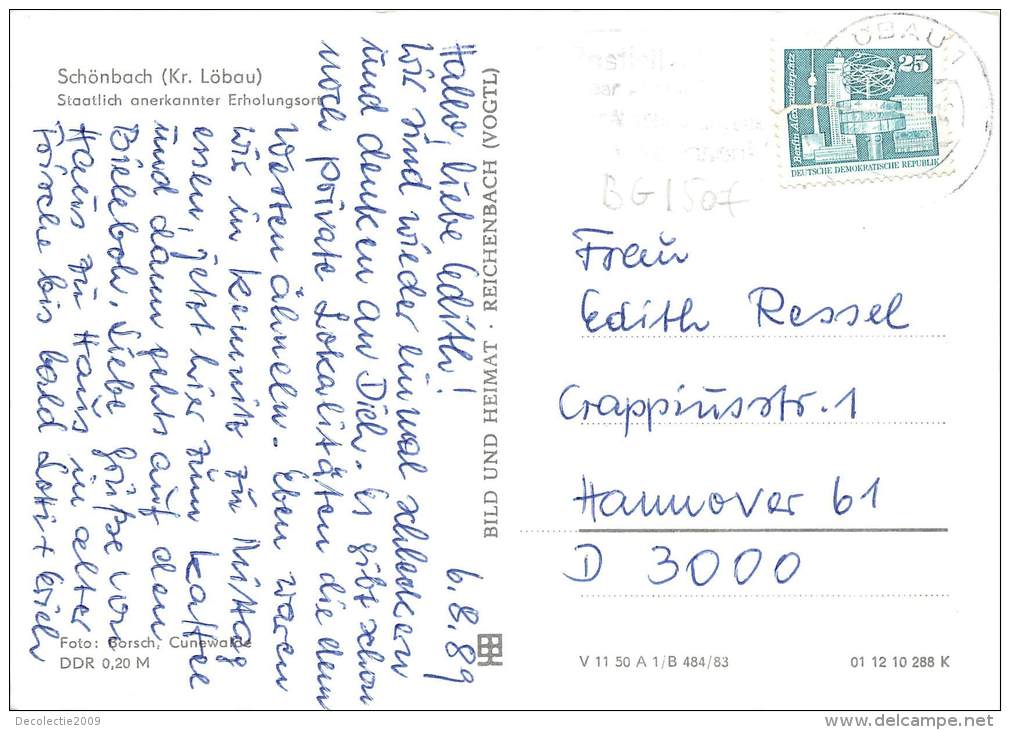 Schönbach (Kr. Löbau)
Staatlich anerkannter Erholungsort
6.8.89
Hallo, liebe Edith!
Wir sind wieder einmal schlickern
und denken an Dich. Es gibt schon
noch private Lokalitäten die dem
Westen ähneln. Eben waren
wir in Kemnitz zu Mittag
essen, jetzt hier zum Kaffee
und dann gehts auf den
Bieleboh. Liebe Grüße von
Haus zu Haus in alter
Frische bis bald Lotti + Erich
Foto: Borsch, Cunewalde
DDR 0,20 M
BILD UND HEIMAT · REICHENBACH (VOGTL)
LÖBAU 1
25
Berlin Alexanderplatz
DEUTSCHE DEMOKRATISCHE REPUBLIK
BG1507
Frau
Edith Ressel
Crappiusstr. 1
Hannover 61
D 3000
V 11 50 A 1/B 484/83
01 12 10 288 K
Decolectie2009
www.delcampe.net